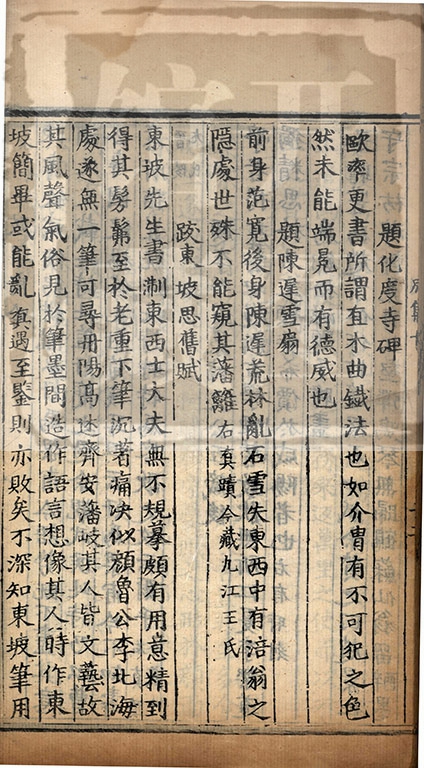 題化度寺碑
歐率更書所謂直木曲鐵法也如介冑有不可犯之色
然未能端冕而有德威也
題陳遲雪扇
前身范寬後身陳遲荒林亂石雪失東西中有涪翁之
隠處世殊不能窺其藩籬右真蹟今藏九江王氏
跋東坡思舊賦
東坡先生書淛東西士大夫無不規摹頗有用意精到
得其髣髴至於老重下筆沉著痛决似顔魯公李北海
處遂無一筆可尋丹陽高述齊安潘岐其人皆文藝故
其風聲氣俗見於筆墨間造作語言想像其人時作東
坡簡畢或能亂真遇至鑒則亦敗矣不深知東坡筆用